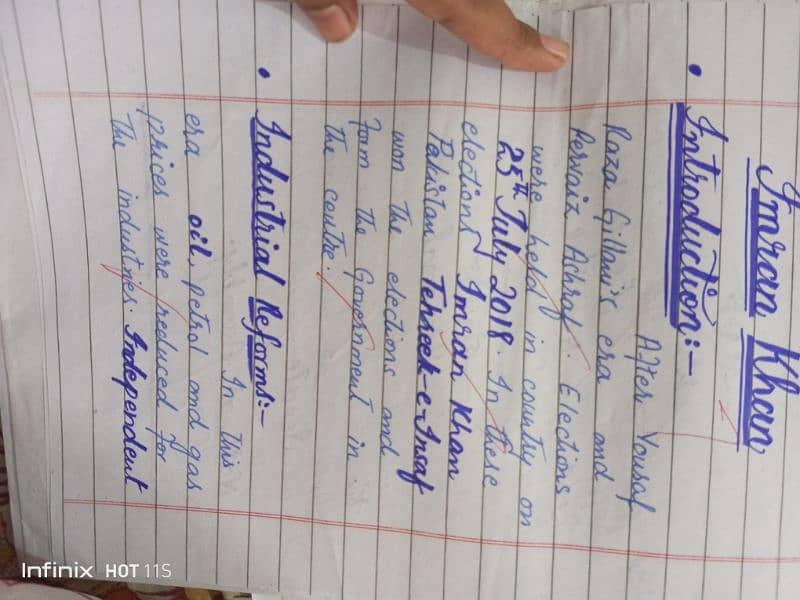 Imran Khan
• Introduction:-
After Yousaf
Raza Gillani's era and
Pervaiz Ashraf. Elections
were held in country on
25th July 2018. In these
elections Imran Khan
Pakistan Tehreek-e-Insaf
won the elections and
form the Government in
the centre.
• Industrial Reforms:-
In this
era oil, petrol and gas
prices were reduced for
The industries. Independent
Infinix HOT 11S